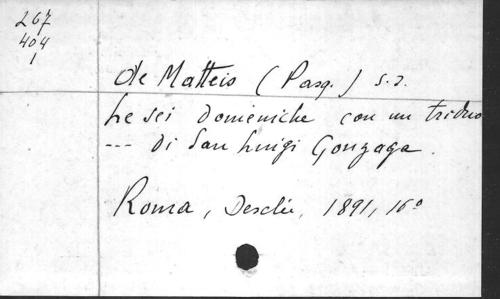 267
404
1
de Matteis (Pasq.) s.J.
Le sei domeniche con un triduo
--- di San Luigi Gonzaga.
Roma, Desclée, 1891, 16º